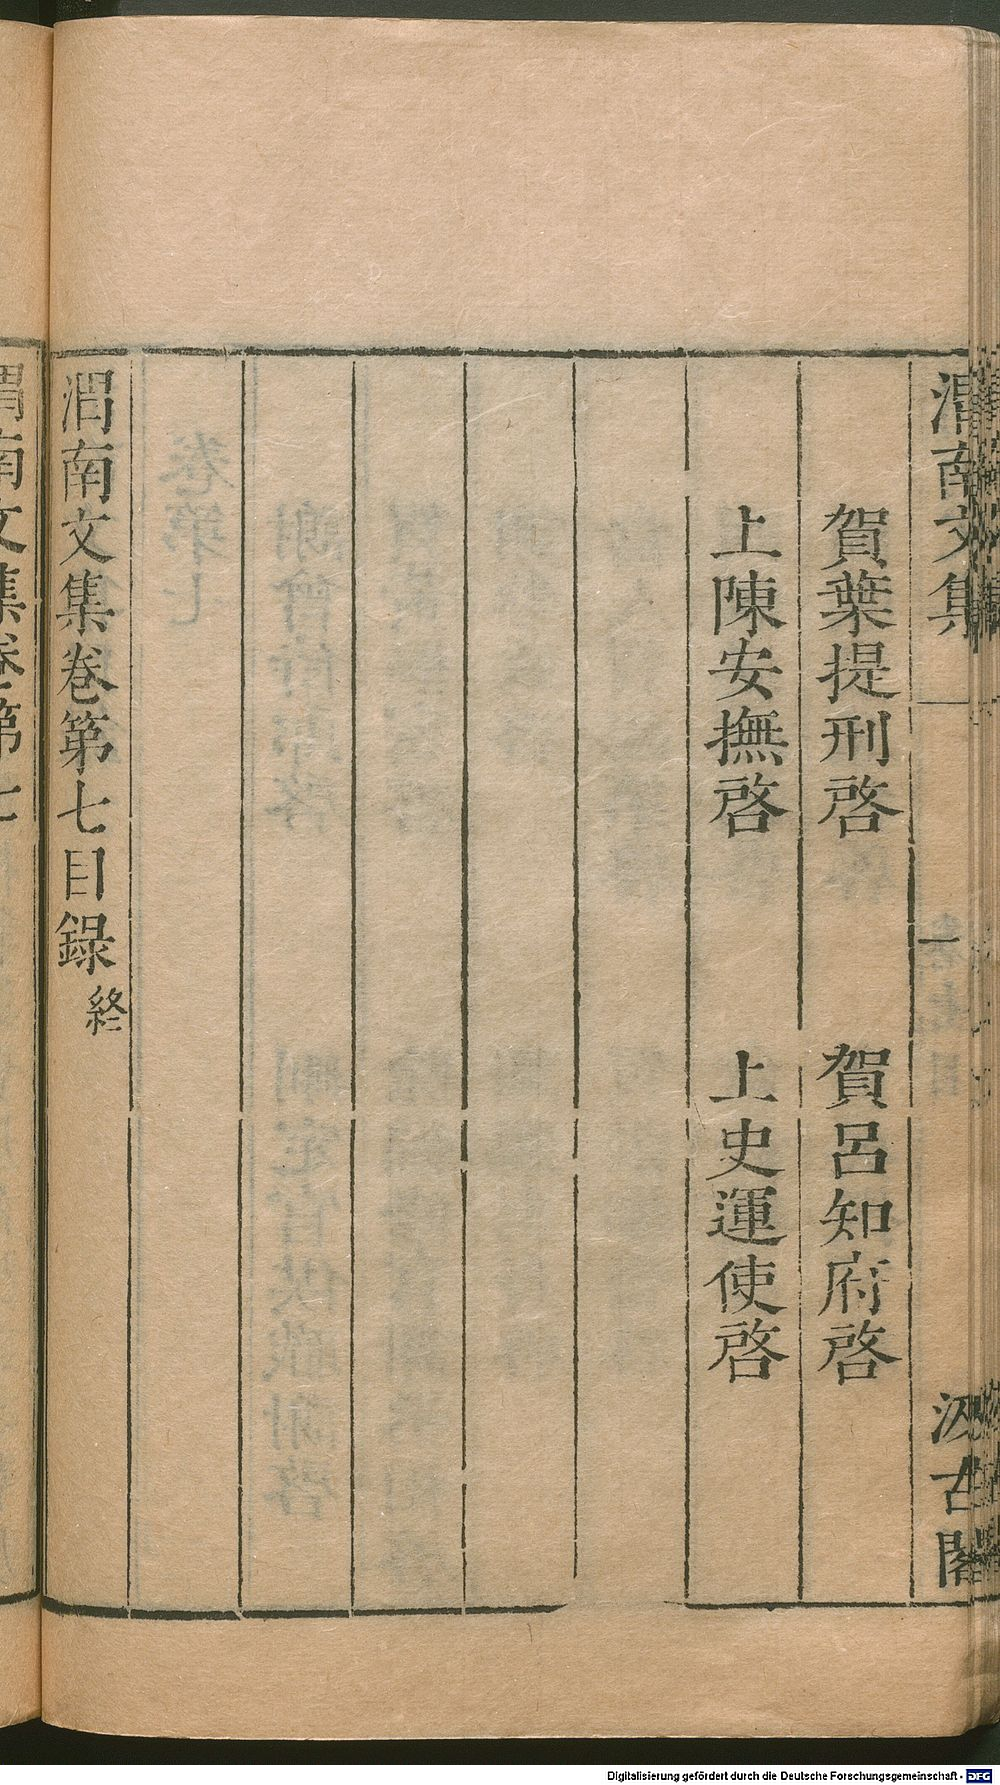 渭南文集
汲古閣
賀葉提刑啓　賀呂知府啓
上陳安撫啓　上史運使啓
渭南文集卷第七目錄終
渭南文集卷第七
Digitalisierung gefördert durch die Deutsche Forschungsgemeinschaft - DFG